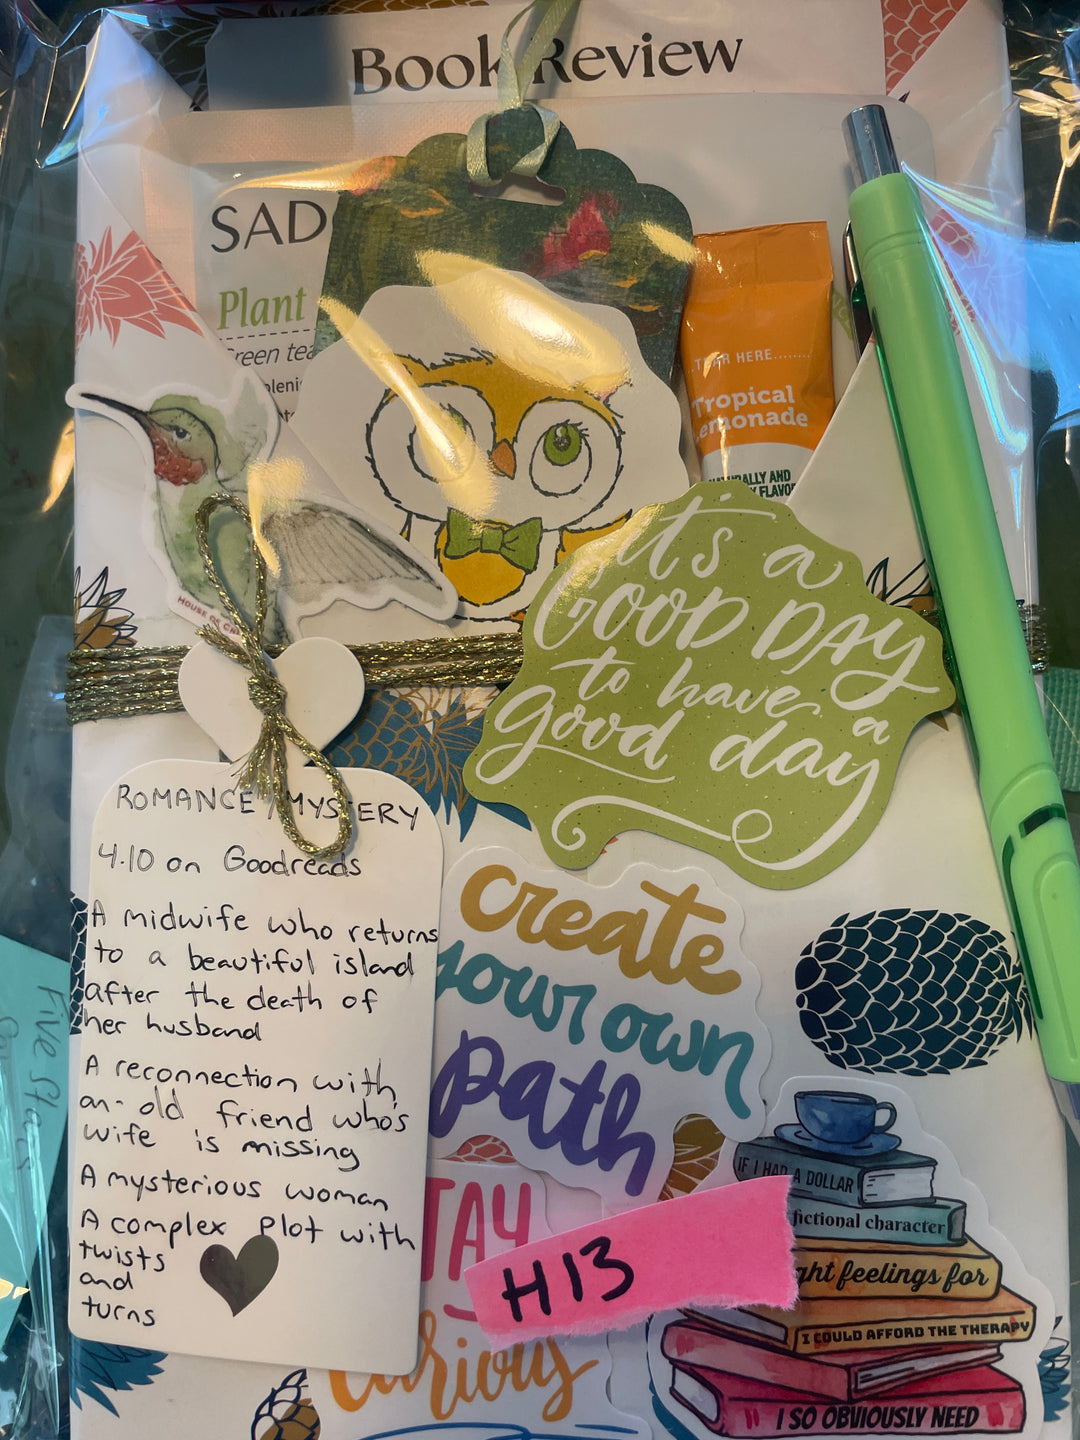 Book Review
SAD
Plant
Green tea
TEAR HERE........
Tropical
Lemonade
NATURALLY AND
FLAVOR
HOUSE OF
it's a
GOOD DAY
to have a
good day
ROMANCE/MYSTERY
4.10 on Goodreads
A midwife who returns
to a beautiful island
after the death of
her husband
A reconnection with
an old friend who's
wife is missing
A mysterious woman
A complex plot with
twists
and
turns
create
your own
path
IF I HAD A DOLLAR
fictional character
ght feelings for
I COULD AFFORD THE THERAPY
I SO OBVIOUSLY NEED
H13
TAY
curious
Five Stars